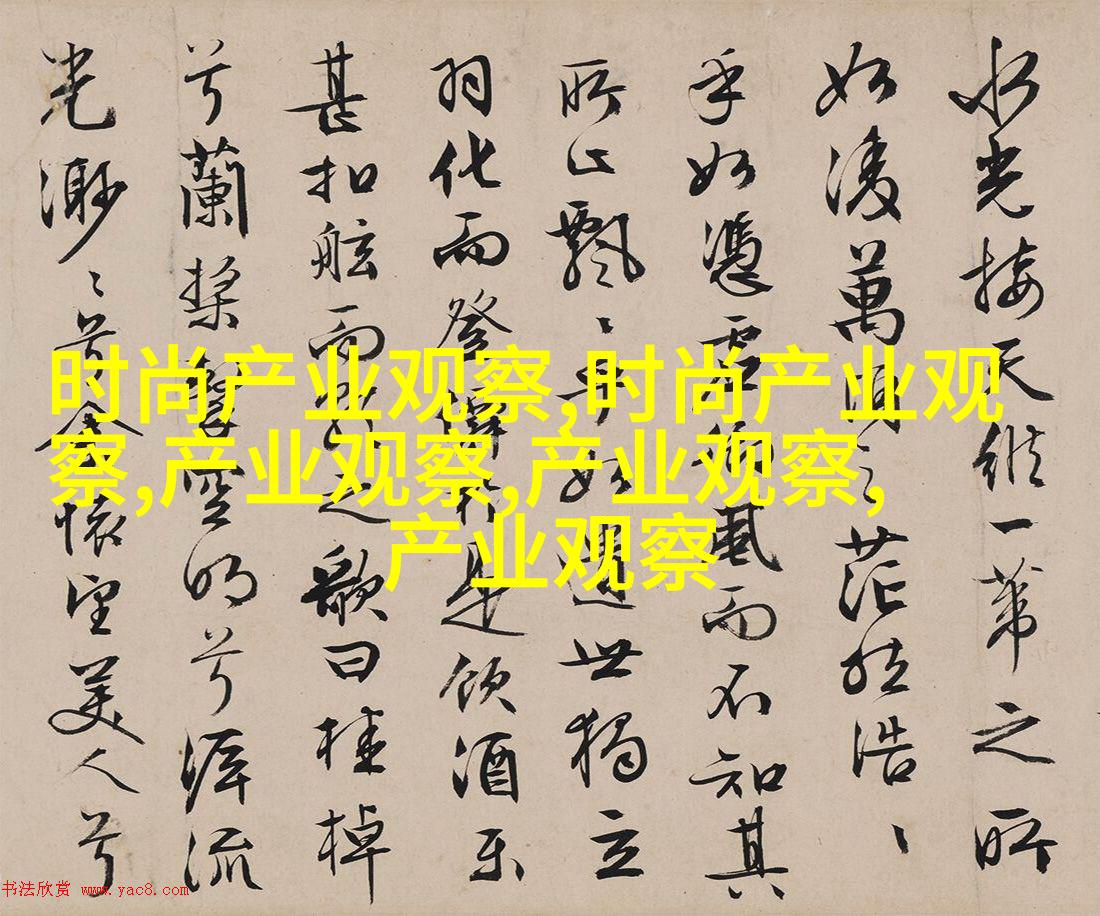 水光接天縱一葦之所
如凌萬頃之茫然浩〻
乎如憑虛御風而不知其
所止飄〻乎如遺世獨立
羽化而登僊於是飲酒樂
甚扣舷而歌之歌曰桂棹
兮蘭槳擊空明兮泝流
光渺〻兮余懷望美人兮
时尚产业观察,时尚产业观
察,产业观察,产业观察,
产业观察
书法欣赏 www.yac8.com